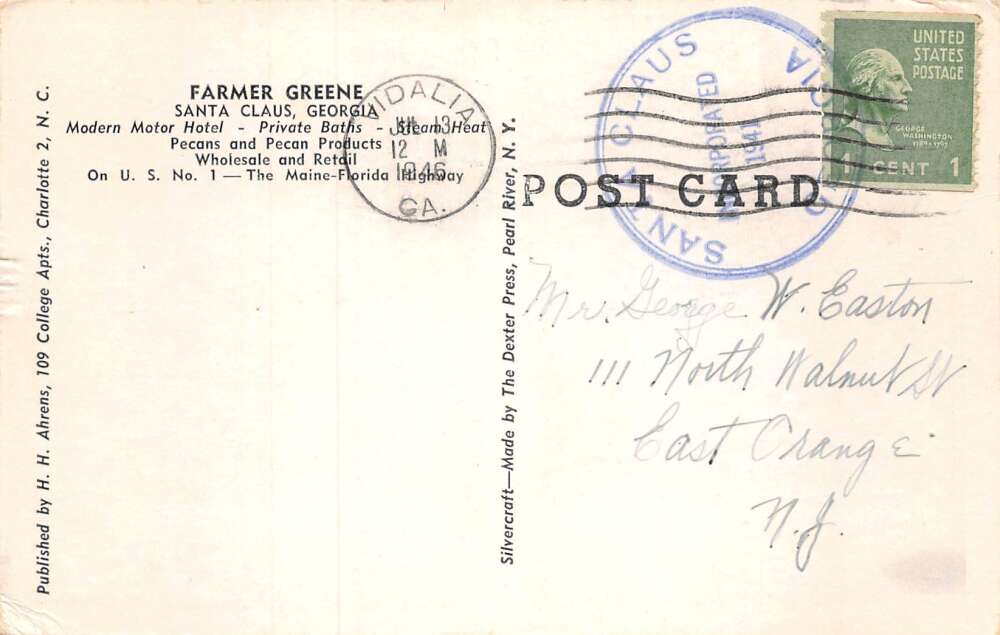 FARMER GREENE
SANTA CLAUS, GEORGIA
Modern Motor Hotel - Private Baths - Steam Heat
Pecans and Pecan Products
Wholesale and Retail
On U. S. No. 1 — The Maine-Florida Highway
VIDALIA
JUL 13
12 M
1946
GA.
SANTA CLAUS
GEORGIA
INCORPORATED
1941
UNITED
STATES
POSTAGE
GEORGE
WASHINGTON
1789-1797
1 CENT 1
POST CARD
Mr. George W. Easton
111 North Walnut St
East Orange
N.J.
Published by H. H. Ahrens, 109 College Apts., Charlotte 2, N. C.
Silvercraft—Made by The Dexter Press, Pearl River, N. Y.